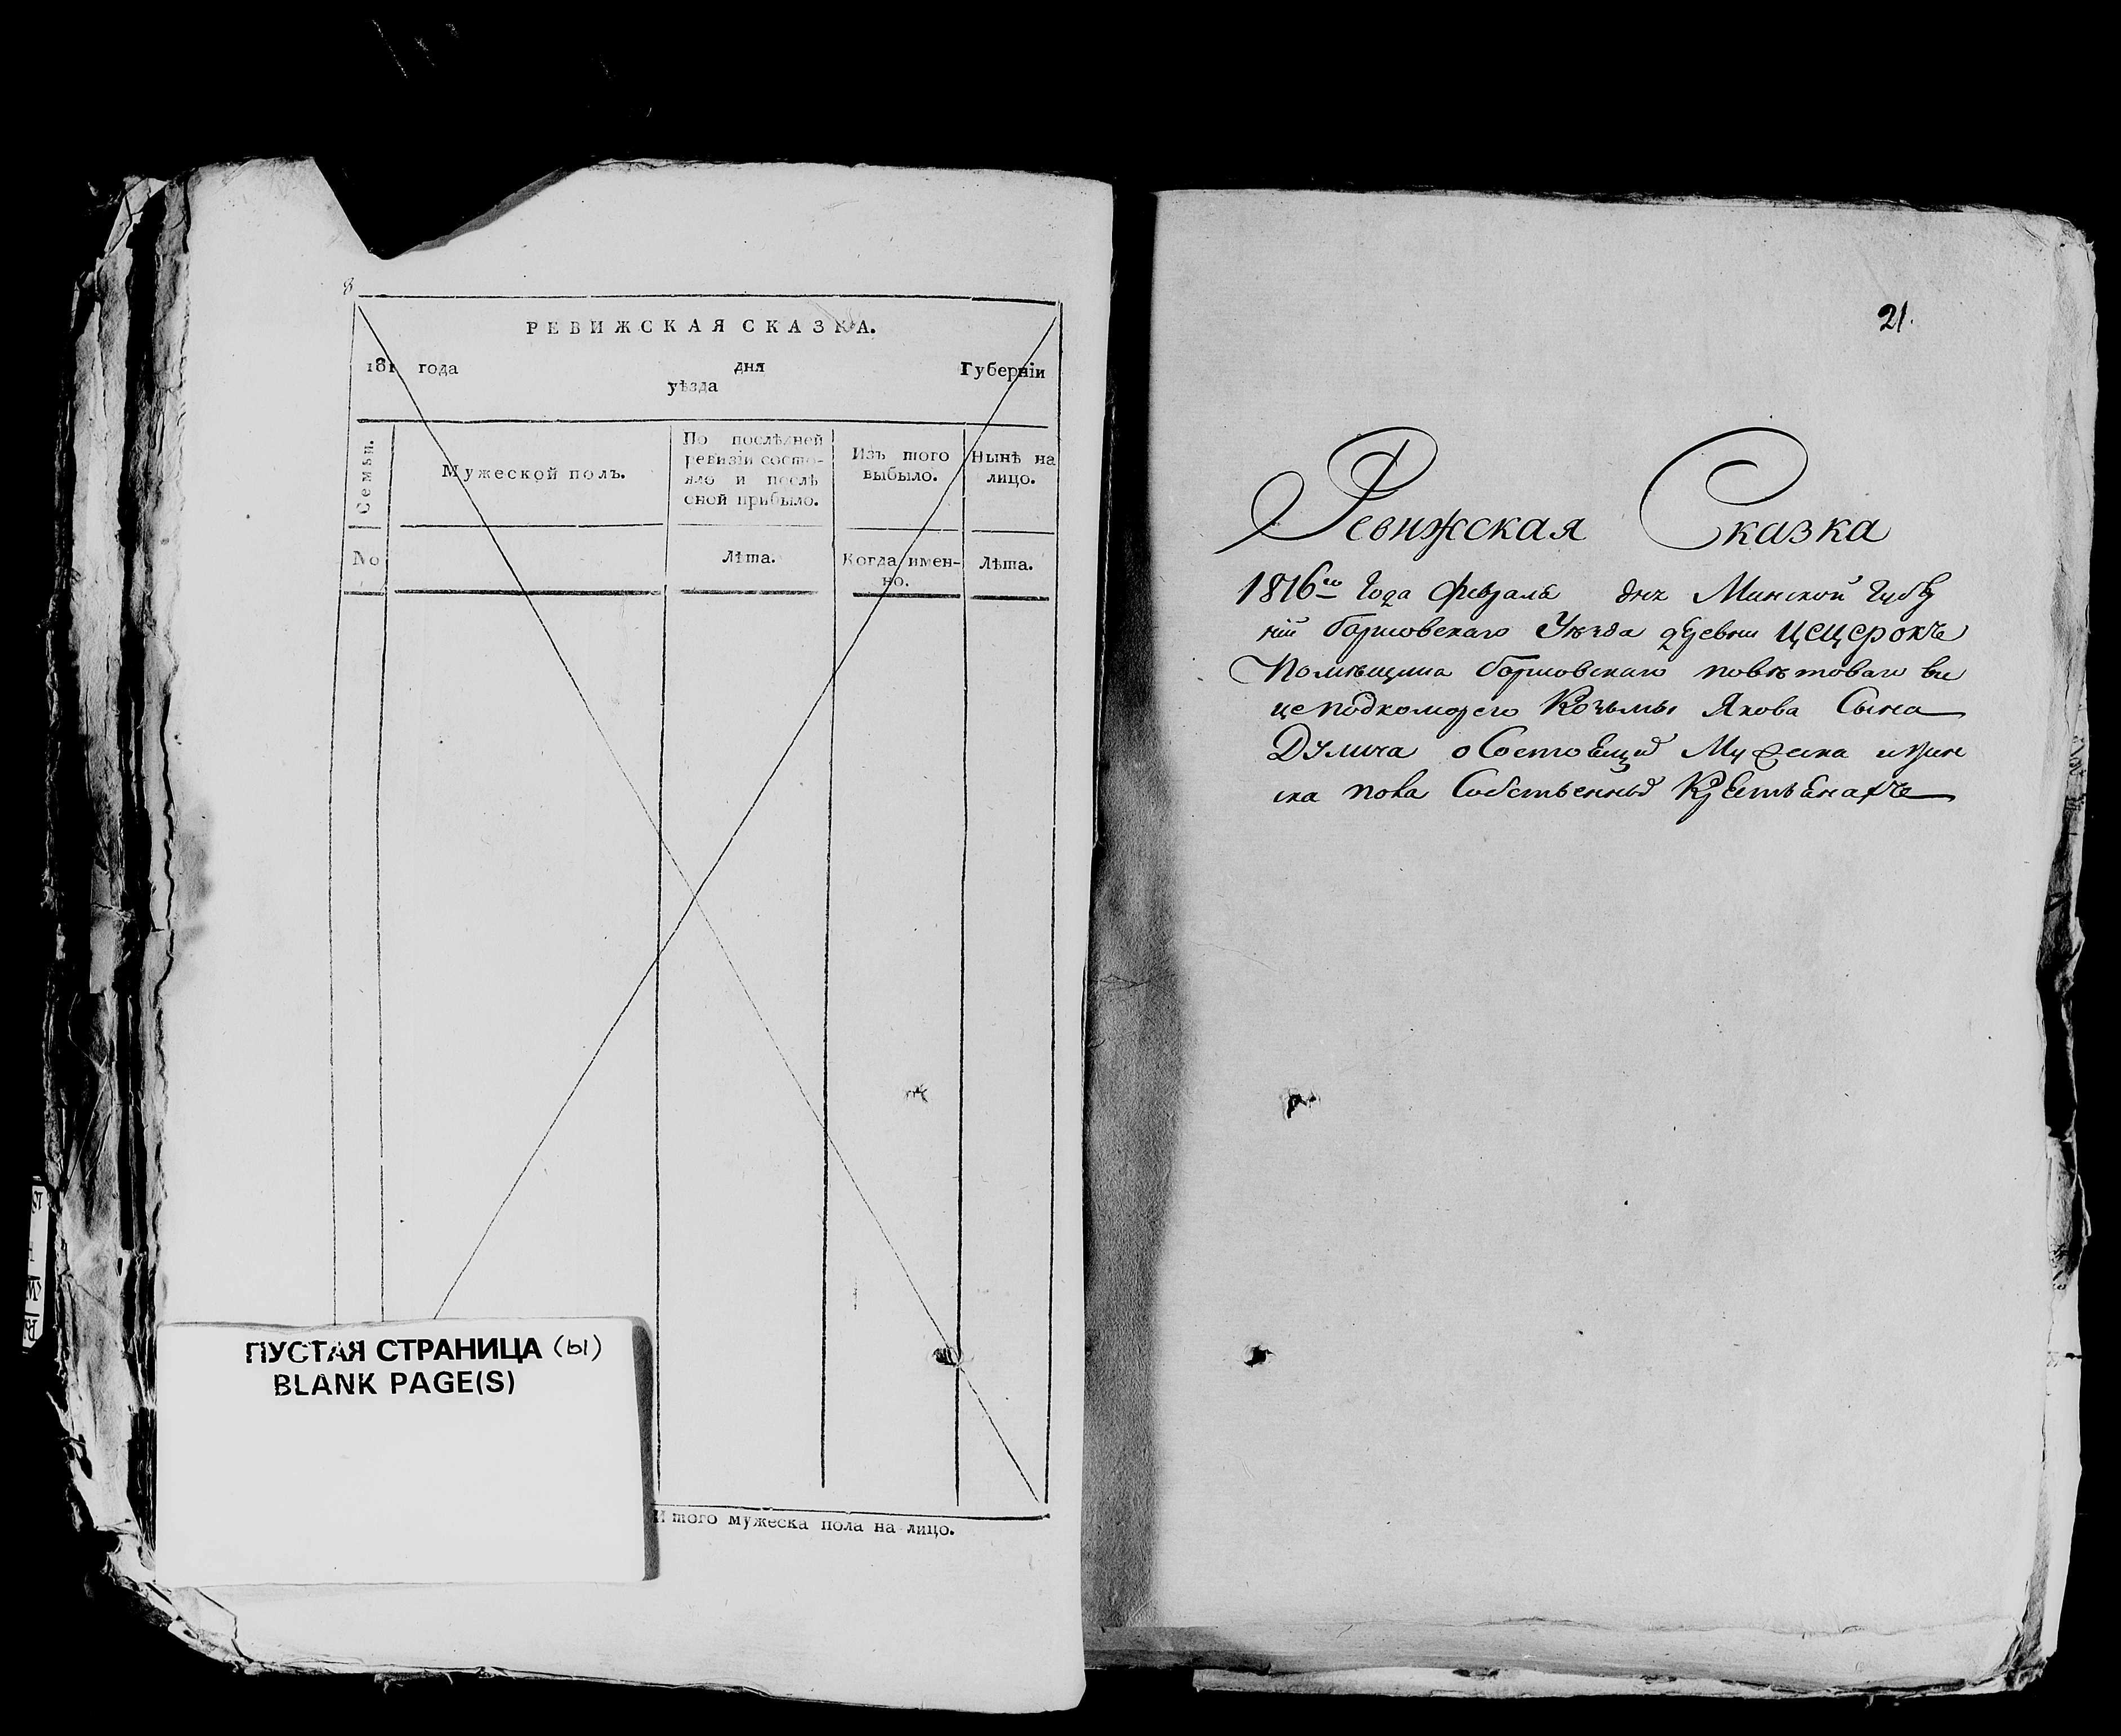 РЕВИЖСКАЯ СКАЗКА.
181 года дня Губерніи
уѣзда
Семьи.
Мужеской полъ.
По послѣдней
ревизіи состо-
яло и послѣ
оной прибыло.
Изъ того
выбыло.
Нынѣ на
лицо.
No
Лѣта.
Когда имен-
но.
Лѣта.
Итого мужеска пола на лицо.
ПУСТАЯ СТРАНИЦА (ы)
BLANK PAGE(S)
21.
Ревижская Сказка
1816го Года Февраля дня Минской Губер
нiи Борисовскаго Уѣзда деревни Цецерокъ
Помѣщика Борисовскаго повѣтоваго ви
це подкоморего Козьмы Якова Сына
Дулича о Состоящих Мужеска и жен
ска пола Собственных Крестьянахъ